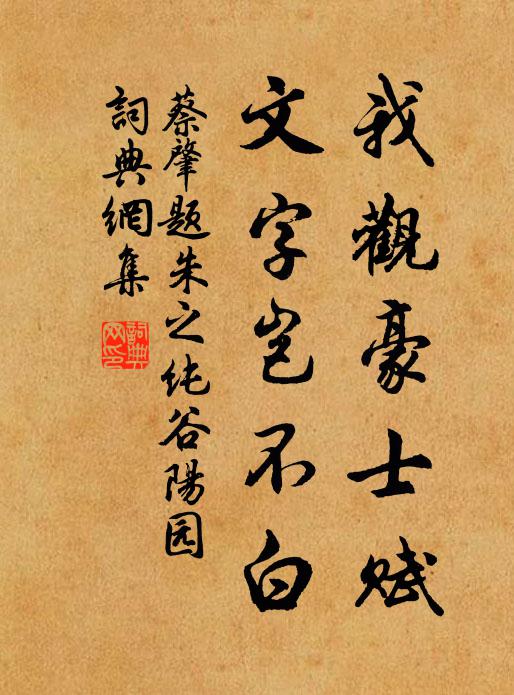 我觀豪士賦
文字岂不白
蔡肇题朱之纯谷陽园
詞典網集
詞典网印